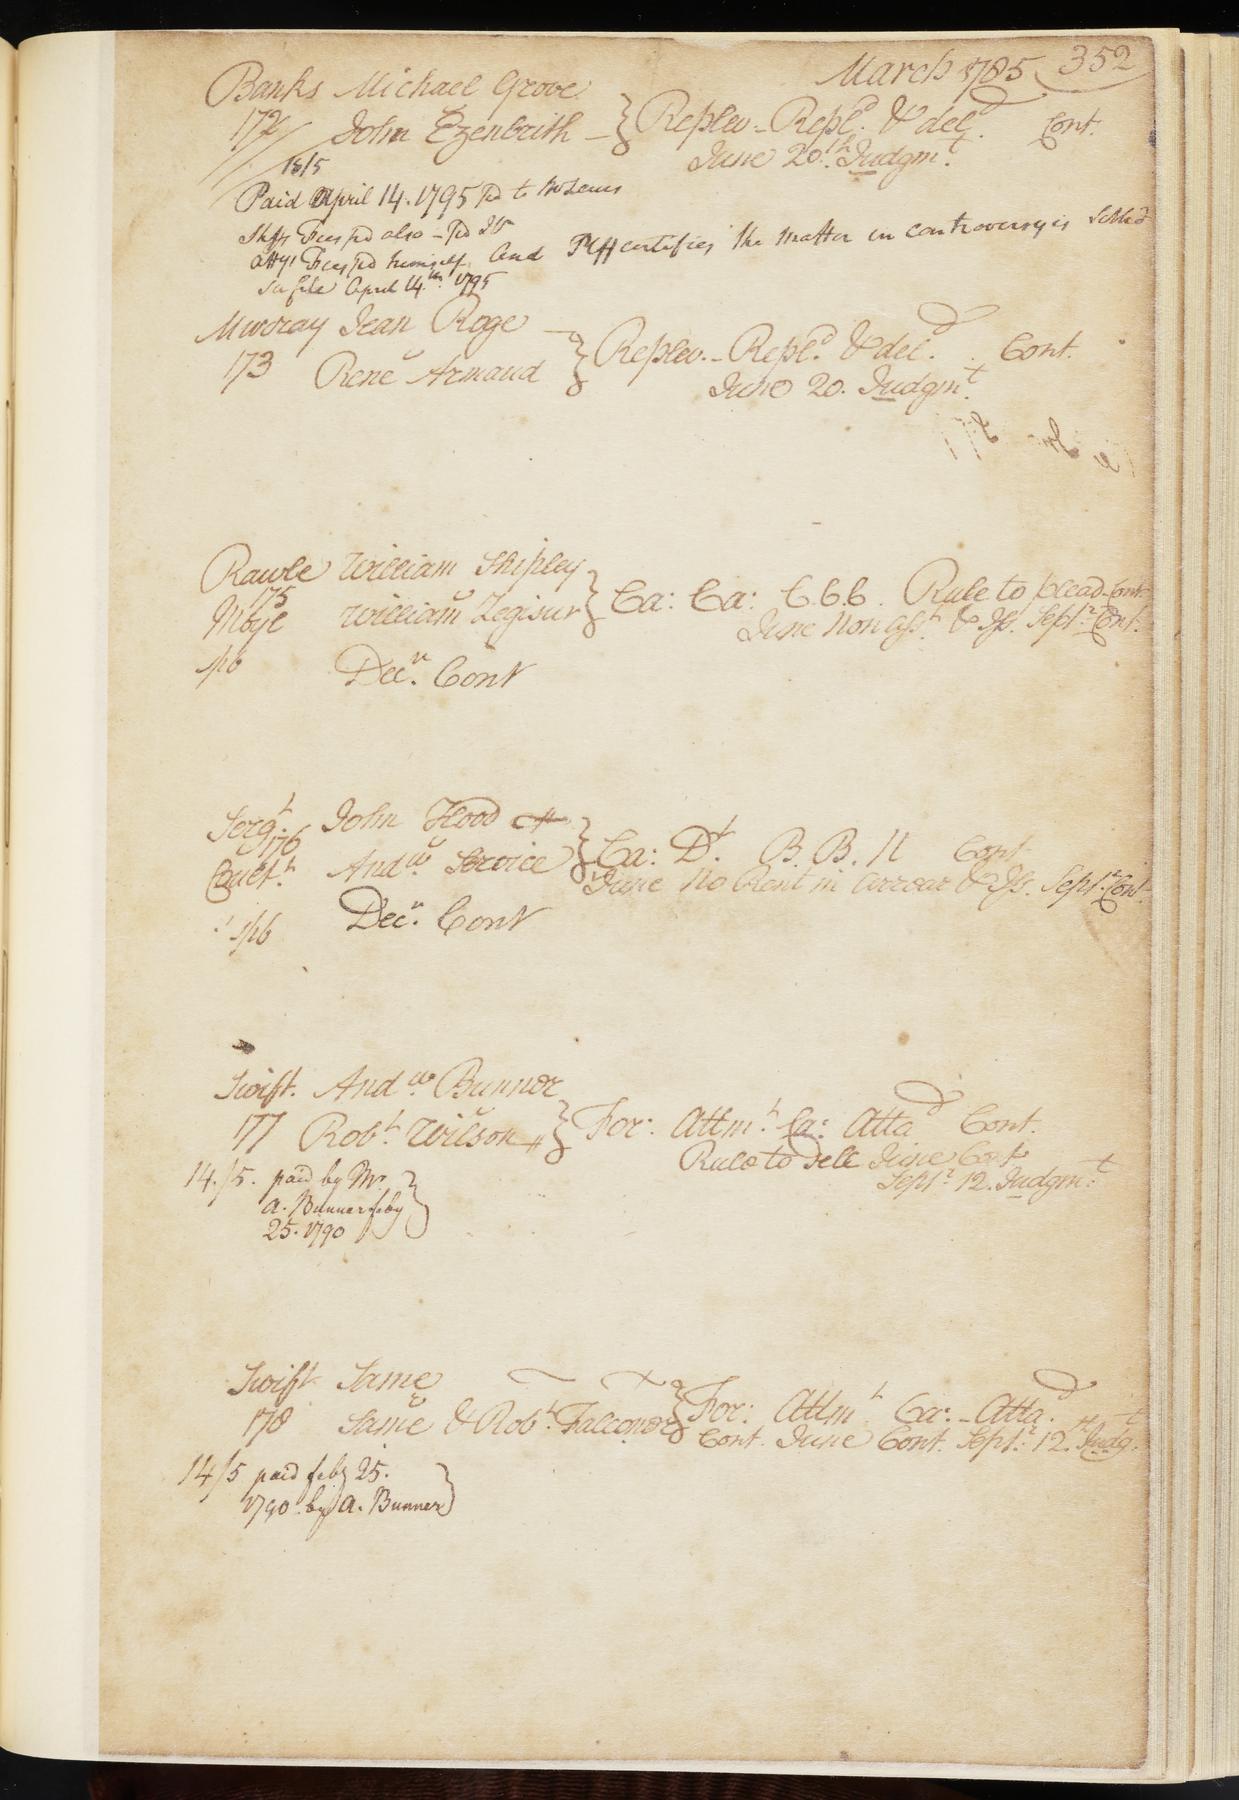 March 1785 352
Banks Michael Grove
172 John Ezenbrith } Replev. - Repl.d & del.d Cont.
June 20.th Judgm.t
18/5
Paid April 14. 1795 pd to
Shffs Fees pd also - pd
Atty's Fees pd himself and Plff certifies the matter in controversy is settled
April 14.th 1795
Murray Jean Roge
173 René Armaud } Replev. - Repl.d & del.d Cont.
June 20. Judgm.t
Rawle William Shipley
175
William Zegisur } Ca: Ca: C.b.b. Rule to plead Cont
June Non ass.t & Iss. Sept.r Cont.
Dec.r Cont
Serg.t John Hood
176
And.w Service } Ca: D.t B. B. N Cont
June No Rent in arrear & Iss. Sept.r Cont.
Dec.r Cont
Swift. And.w Bunner
177 Rob.t Wilson } For: Attm.t Ca: Atta.d Cont.
Rule to sell June Cont
Sept.r 12. Judgm.t
14./5. paid by Mr.
A. Bunner feby
25. 1790
Swift Same
178 Same & Rob.t Falconer } For: Attm.t Ca: - Atta.d
Cont. June Cont. Sept.r 12.th Judg.t
14/5 paid feby 25.
1790. by A. Bunner